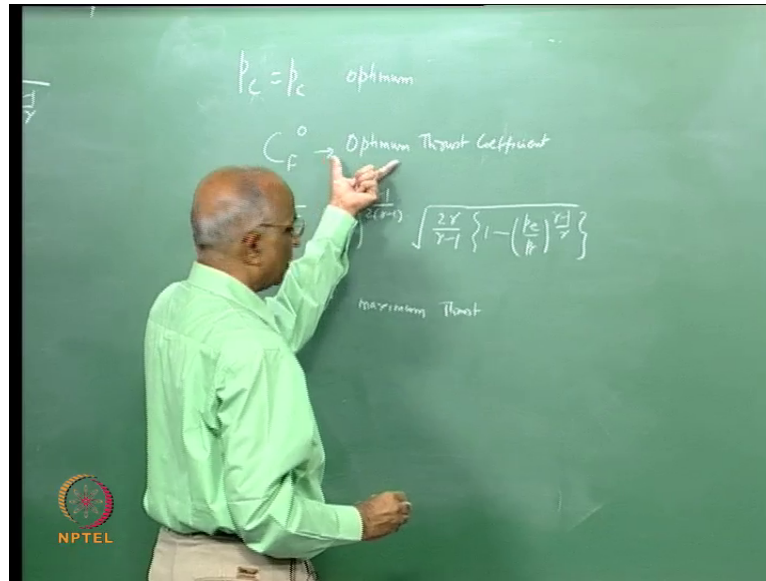 γ-1
γ
p_c = p_c optimum
C_F^0 → Optimum Thrust Coefficient
-1
2(γ-1) √ 2γ/γ-1 { 1 - (p_e/p_c)^(γ-1/γ) }
maximum Thrust
NPTEL